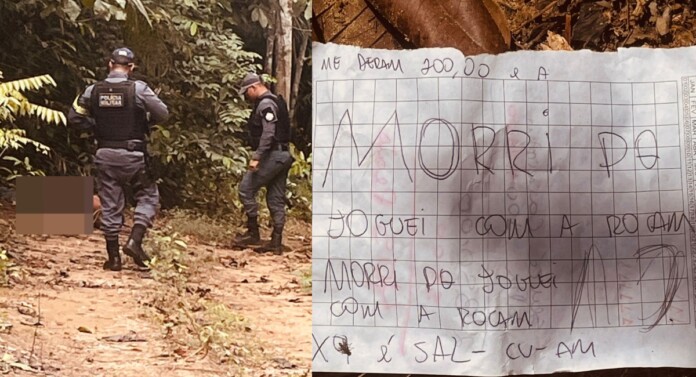 POLÍCIA
MILITAR
ME DERAM 200,00 e A
MORRI PQ
JOGUEI COM A ROCAM
MORRI PQ JOGUEI
COM A ROCAM
é SAL- CU-AM